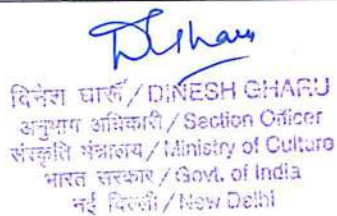 दिनेश घारूँ/DINESH GHARU
अनुभाग अधिकारी/Section Officer
संस्कृति मंत्रालय/Ministry of Culture
भारत सरकार/Govt. of India
नई दिल्ली/New Delhi